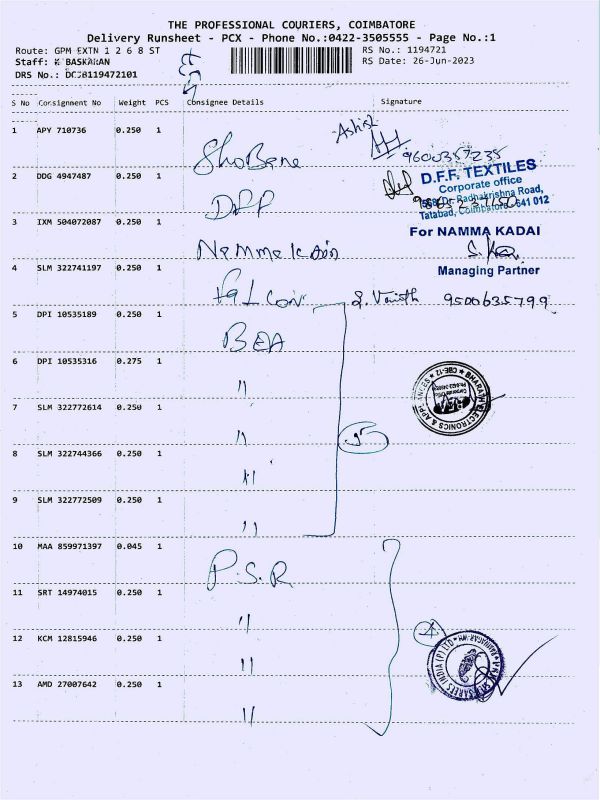 THE PROFESSIONAL COURIERS, COIMBATORE
Delivery Runsheet - PCX - Phone No.:0422-3505555 - Page No.:1
Route: GPM EXTN 1 2 6 8 ST RS No.: 1194721
Staff: K BASKARAN RS Date: 26-Jun-2023
DRS No.:
S No Consignment No Weight PCS Consignee Details Signature
1 APY 710736 0.250 1 Ashik
Shobana 9600357235
2 DDG 4947487 0.250 1 D.F.F. TEXTILES
Corporate office
DFF Dr. Radhakrishna Road,
Tatabad, Coimbatore - 641 012
3 IXM 504072087 0.250 1 For NAMMA KADAI
Managing Partner
4 SLM 322741197 0.250 1
Falcon 9500635799
5 DPI 10535189 0.250 1
BEA
6 DPI 10535316 0.275 1
"
BHARATH ELECTRONICS & APPLIANCES CBE-12
7 SLM 322772614 0.250 1
"
8 SLM 322744366 0.250 1
"
9 SLM 322772509 0.250 1
"
10 MAA 859971397 0.045 1
P.S.R
11 SRT 14974015 0.250 1
"
12 KCM 12815946 0.250 1
SAREES INDIA (P) LTD
"
13 AMD 27007642 0.250 1
"